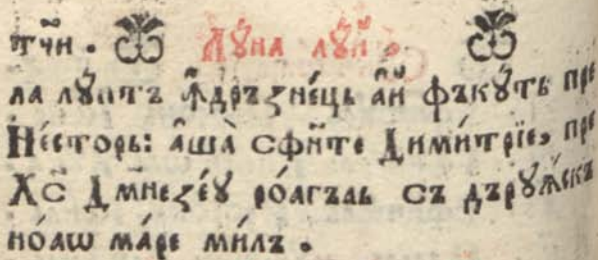 тчи . Лꙋ́на лꙋй .
ла лꙋ́птъ ꙟ҆дръзне́цъ а҆й фъкꙋ́тъ пре
Не́сторь: а҆ша̀ сфи́те Дими́трїе, пре
Хс҃ Дм҃незе́ꙋ роагъль съ дърꙋѧ́скъ
но́аѡ ма́ре ми́лъ .